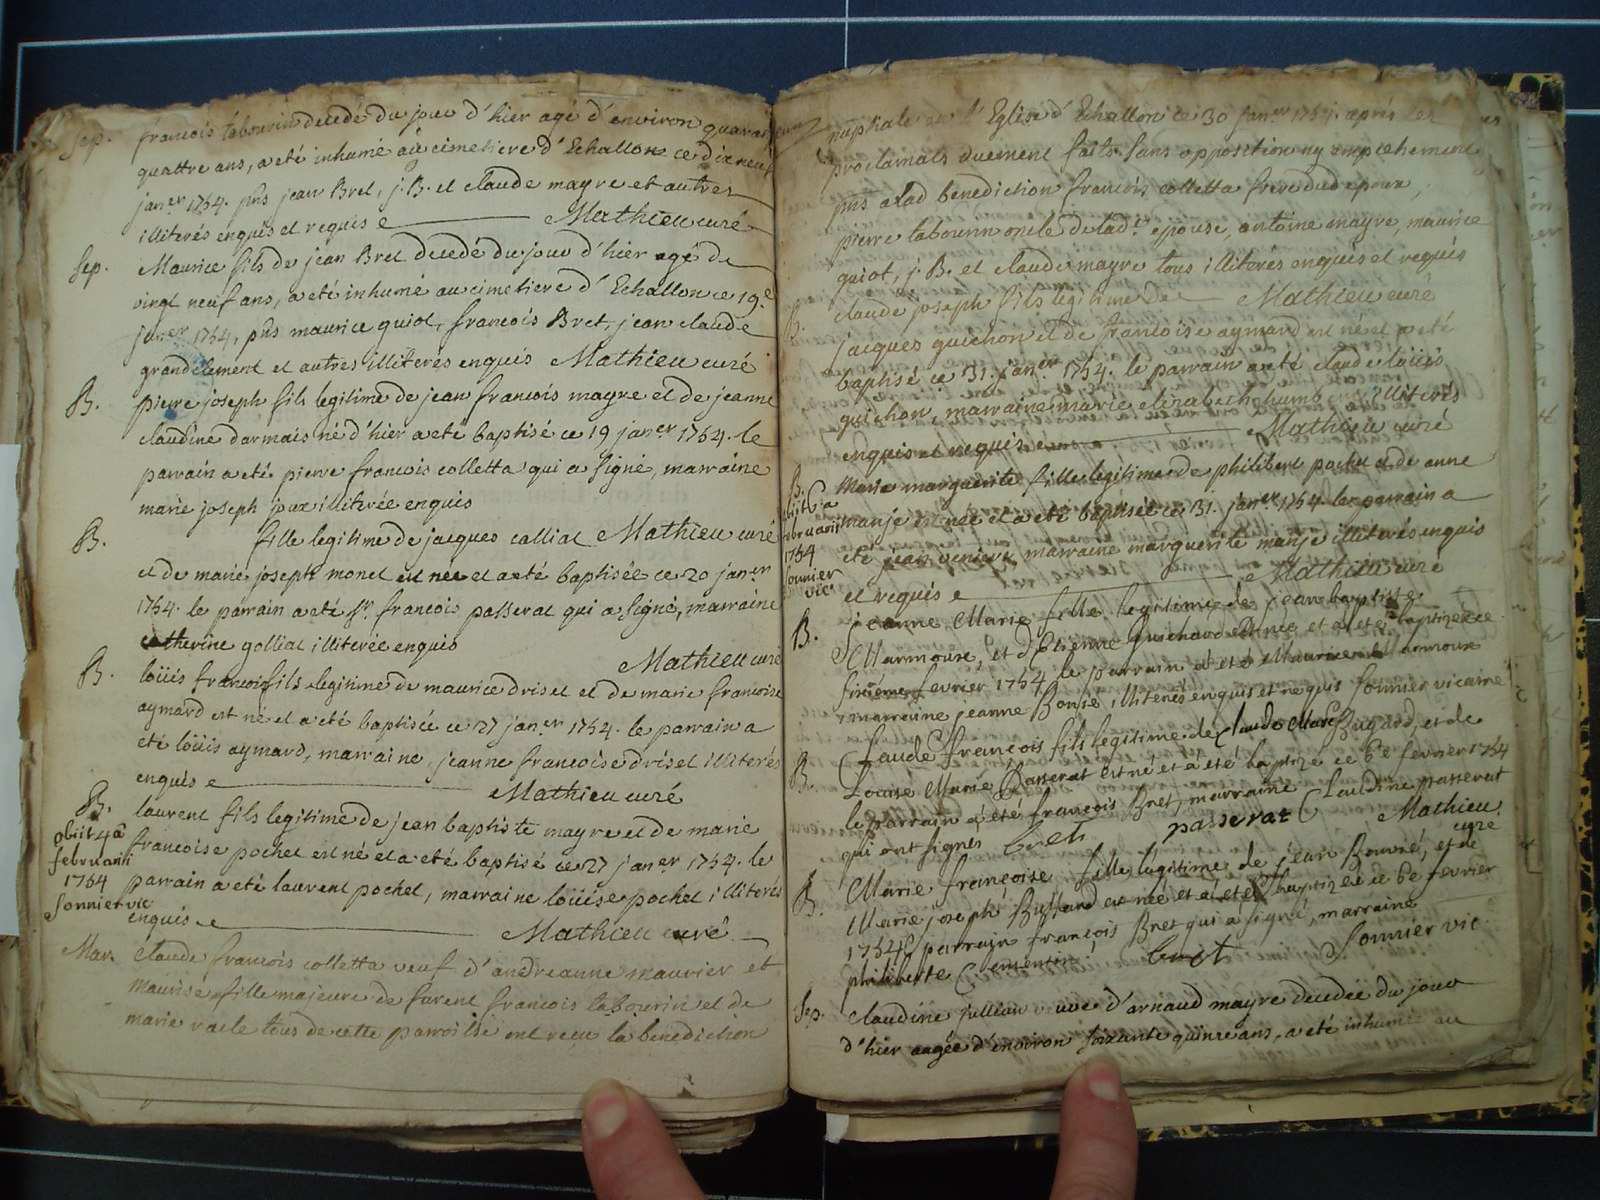 Sep. francois tabourin decedé du jour d'hier agé d'environ quarante
quattre ans, a eté inhumé au cimetiere d'Echallon ce dixneuf
janer 1764. pns jean Bret, j. B. et claude mayre et autres
illiterés enquis et requis e Mathieu curé
Sep. Maurice fils de jean Bret decedé du jour d'hier agé de
vingt neuf ans, a eté inhumé au cimetiere d'Echallon ce 19e
janer 1764, pns maurice guiot, francois Bret, jean claude
grandclement et autres illiterés enquis Mathieu curé
B. pierre joseph fils legitime de jean francois mayre et de jeanne
claudine darmais né d'hier a eté baptisé ce 19 janer 1764. le
parrain a eté pierre francois colletta qui a signé, marraine
marie joseph illiterée enquis
B. fille legitime de jacques calliat Mathieu curé
et de marie joseph monet est née et a eté baptisée ce 20 janer
1764. le parrain a eté sr. francois passerat qui a signé, marraine
catherine golliat illiterée enquis
Mathieu curé
B. loüis francois fils legitime de maurice driset et de marie francoise
aymard est né et a eté baptisée ce 27 janer 1764. le parrain a
eté loüis aymard, marraine, jeanne francoise driset illiterés
enquis e Mathieu curé
B. laurent fils legitime de jean baptiste mayre et de marie
obiit 4a februarii 1764 Sonnier vic
francoise pochet est né et a eté baptisé ce 27 janer 1764. le
parrain a eté laurent pochet, marraine loüise pochet illiterés
enquis e Mathieu curé
Mar. Claude francois colletta veuf d'andreanne maurier et
maurise fille majeure de furent francois tabourin et de
marie vacle tous de cette parroisse ont recu la benediction
nuptiale en l'Eglise d'Echallon ce 30 janer 1764. aprés les
proclamats duement faits sans opposition ny empechement
pns a lad benediction francois colletta frere dud epoux,
pierre tabourin oncle de lade. epouse, antoine mayre, maurice
guiot, j. B. et claude mayre tous illiteres enquis et requis
B. claude joseph fils legitime de Mathieu curé
jacques guichon et de francoise aymard est né et a eté
baptisé ce 31. janer 1764. le parrain a eté claude loüis
guichon, marraine marie elizabeth humb illiterés
enquis et requis e Mathieu curé
B. Marie marguerite fille legitime de philibert pochet et de anne
obiit februarii 1764 Sonnier vic
manje est née et a eté baptisée ce 31. janer 1764. le parrain a
eté jean marraine marguerite manje illiterés enquis
et requis e Mathieu curé
B. jeanne Marie fille legitime de jean baptiste
Marmoux, et d'Etienne Guichard est née et a eté baptizée ce
sixiéme fevrier 1764 le parrain a eté Maurice marmoux
marraine jeanne illiterés enquis et requis Sonnier vicaire
B. Claude François fils legitime de Claude Marc Bugard, et de
Louise Marie Passerat est né et a été baptizé ce 6e fevrier 1764
le parrain a été françois Bret, marraine Claudine passerat
qui ont signés bret passerat Mathieu
curé
B. Marie françoise fille légitime de jean Bouvré, et de
Marie joseph Buffard est née et a eté baptizée ce 6e fevrier
1764 parrain françois Bret qui a signé, marraine
philiberte Clementin, bret Sonnier vic
Sep. claudine jullian veuve d'arnaud mayre decedée du jour
d'hier aagée d'environ soixante quinze ans, a eté inhumé au